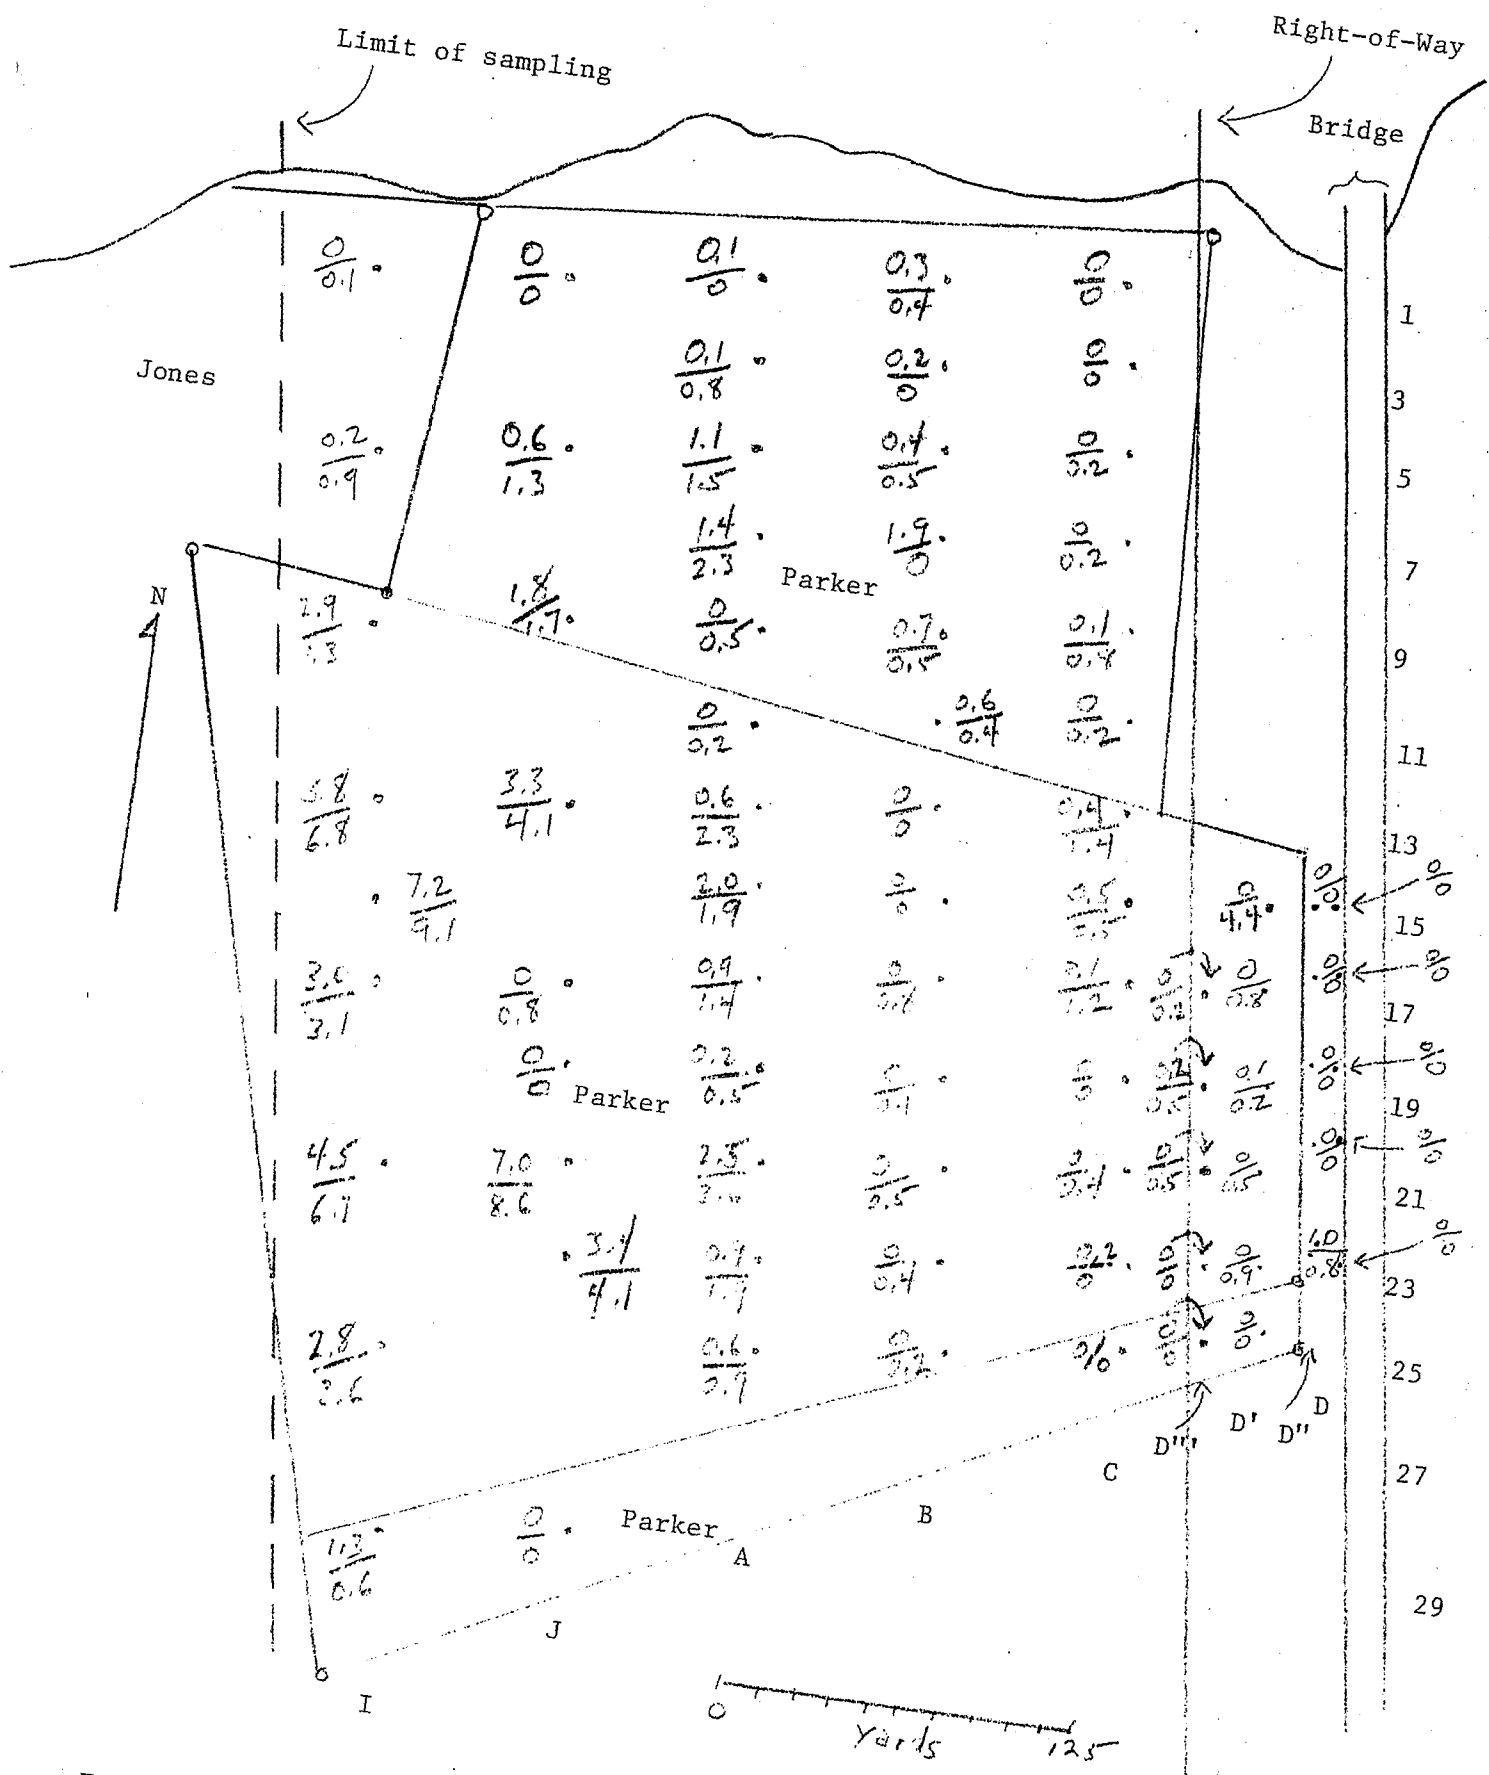 Limit of sampling
Right-of-Way
Bridge
0/0.1 0/0 0.1/0 0.3/0.4 0/0
1
Jones
0.1/0.8 0.2/0 0/0
3
0.2/0.9 0.6/1.3 1.1/1.5 0.4/0.5 0/0.2
5
1.4/2.3 1.9/0 0/0.2
Parker
7
N
1.8/1.7 0/0.5 0.7/0.5
9
0/0.2 0.6/0.4 0/0.2
11
6.8 3.3/4.1 0.6/2.3 0/0 0.4/1.4
13
7.2/9.1 2.0/1.9 0/0 0.5 0/4.4 0/0 0/0
15
3.1 0/0.8 0.9/1.4 0/0.8 0.1/1.2 0/0.2 0/0.8 0/0 0/0
17
0/0 0.2/0.5 0/0 0.1/0.2 0/0 0/0
Parker
19
4.5 7.0/8.6 0/0.5 0/0.4 0/0.5 0/0 0/0
21
3.4/4.1 0/0.4 0.2/0 0/0 0/0.9 1.0/0.8 0/0
23
2.8 0.6/0.9 0/0.2 0/0 0/0 0/0
25
D
D'
D''
D'''
C
27
1.3/0.6 0/0
Parker
B
A
29
J
I
0
125
Yards